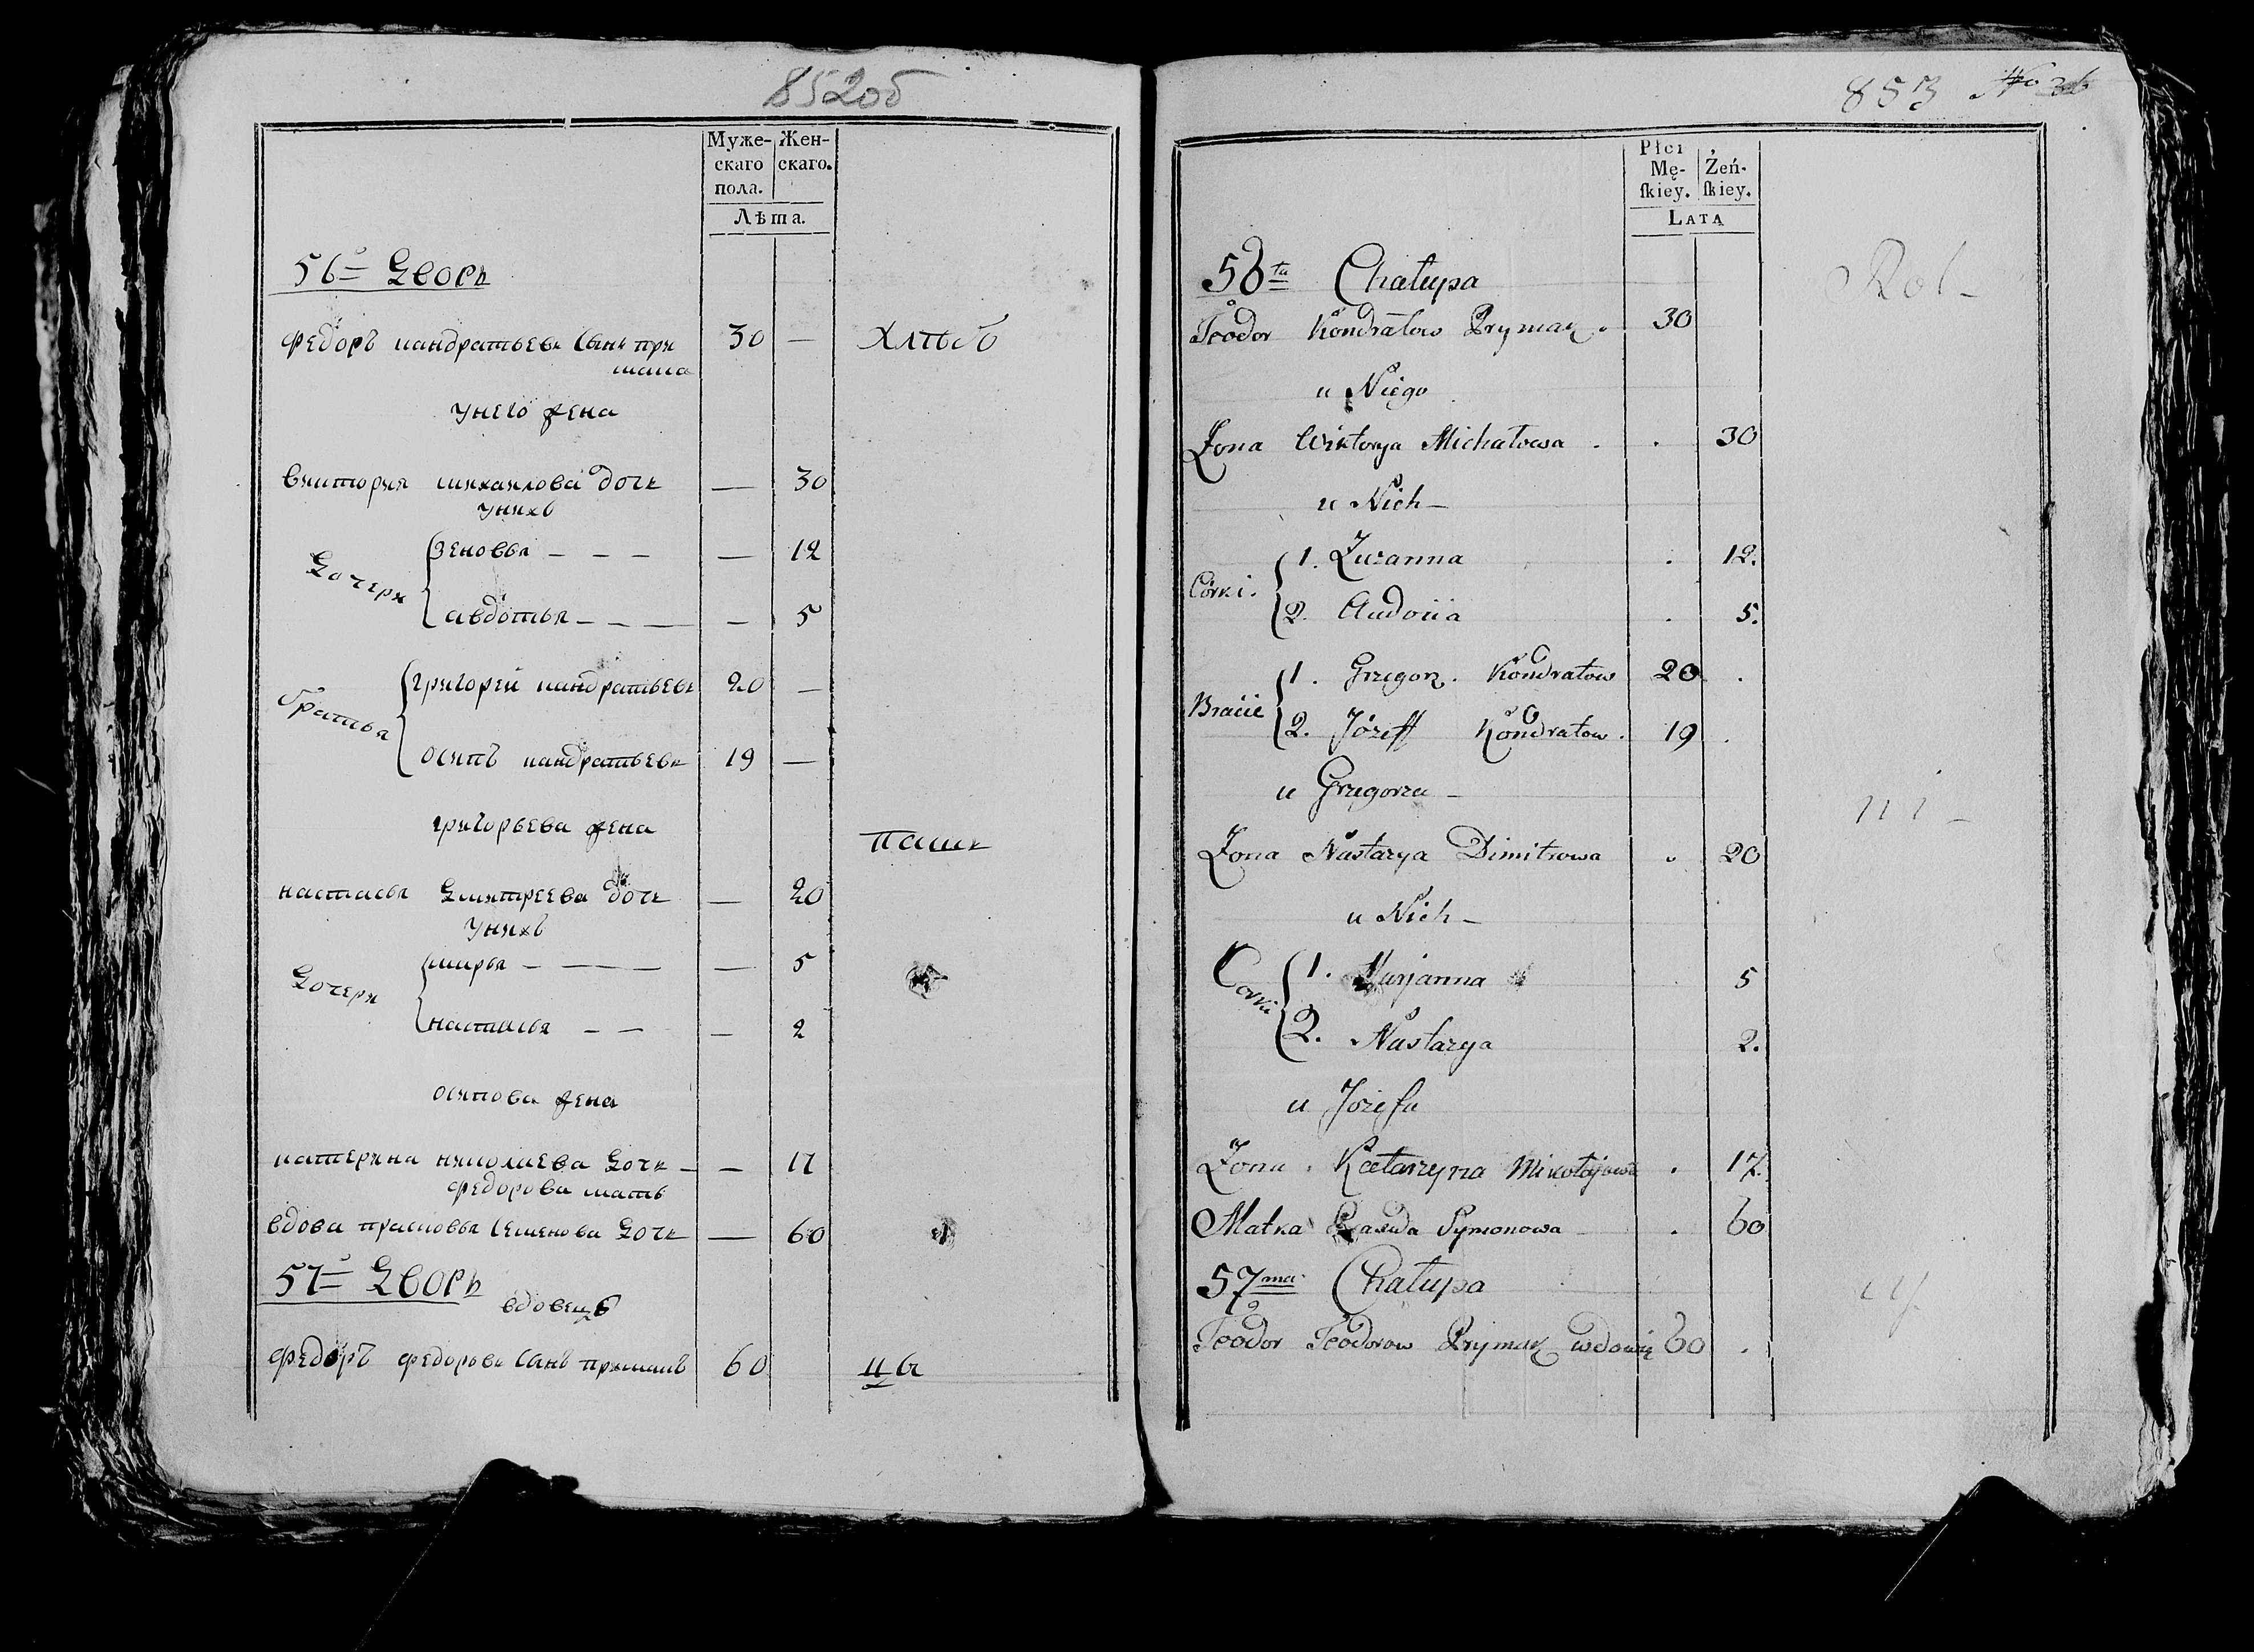 852об
Муже-
скаго
пола.
Жен-
скаго.
Лѣта.
56й Дворъ
Федоръ кандратьевъ Сынъ при
мака
30 —
Хлѣбо
унего жена
виктория михаилова дочь — 30
унихъ
Дочери
зеновья — — — — 12
авдотья — — — — 5
братья
григореи кандратьевъ 20 —
осипъ кандратьевъ 19 —
григорьева жена
паше
настасья Дмитреева дочь — 20
унихъ
Дочери
марья — — — — 5
настасья — — — 2
осипова жена
катерина николаева Дочь — — 17
федорова мать
вдова прасковья Семенова Дочь — 60
57й Дворъ
вдовецъ
Федоръ федоровъ Сынъ примакъ 60
цъ
853 No 36
Płci
Mę-
ſkiey.
Żeń-
ſkiey.
LATA
56ta Chałupa
Rol-
Teodor Kondratow Prymak . 30
u Niego
Zona Wiktorya Michałowa . . 30
u Nich —
Córki.
1. Zuzanna . 12.
2. Audocia . 5.
Bracie
1. Grzegorz. Kondratow 20 .
2. Józeff Kondratow. 19 .
u Grzegorza —
ni —
Zona Nastazya Dimitrowa . 20
u Nich —
Corki
1. Marjanna 5
2. Nastazya 2.
u Jozefa
Zona . Katarzyna Mikołajowa . 17.
Matka Symonowa . 60
57ma. Chałupa
Teodor Teodorow Prymak wdowiec 60 .